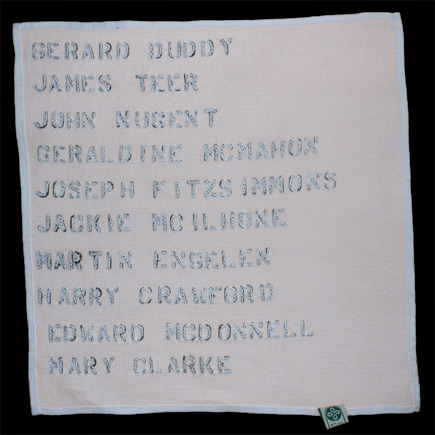 GERARD DUDDY
JAMES TEER
JOHN NUGENT
GERALDINE MCMAHON
JOSEPH FITZSIMMONS
JACKIE MCILHONE
MARTIN ENGELEN
HARRY CRAWFORD
EDWARD MCDONNELL
MARY CLARKE